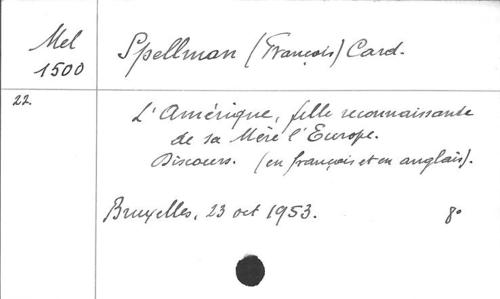 Mel
1500
Spellman (François) Card.
22.
L'Amérique, fille reconnaissante
de sa Mère l'Europe.
Discours. (en français et en anglais).
Bruxelles, 23 oct 1953. 8°